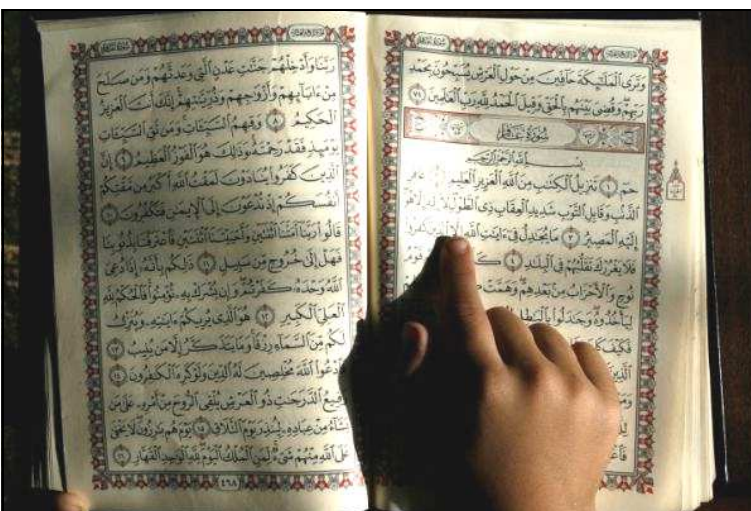 وَتَرَى ٱلْمَلَٰٓئِكَةَ حَآفِّينَ مِنْ حَوْلِ ٱلْعَرْشِ يُسَبِّحُونَ بِحَمْدِ
رَبِّهِمْ وَقُضِىَ بَيْنَهُم بِٱلْحَقِّ وَقِيلَ ٱلْحَمْدُ لِلَّهِ رَبِّ ٱلْعَٰلَمِينَ ٧٥
سُورَةُ غَافِرٍ
بِسْمِ ٱللَّهِ ٱلرَّحْمَٰنِ ٱلرَّحِيمِ
حمٓ ١ تَنزِيلُ ٱلْكِتَٰبِ مِنَ ٱللَّهِ ٱلْعَزِيزِ ٱلْعَلِيمِ ٢ غَافِرِ
ٱلذَّنۢبِ وَقَابِلِ ٱلتَّوْبِ شَدِيدِ ٱلْعِقَابِ ذِى ٱلطَّوْلِ لَآ إِلَٰهَ إِلَّا هُوَ
إِلَيْهِ ٱلْمَصِيرُ ٣ مَا يُجَٰدِلُ فِىٓ ءَايَٰتِ ٱللَّهِ إِلَّا ٱلَّذِينَ كَفَرُوا۟
فَلَا يَغْرُرْكَ تَقَلُّبُهُمْ فِى ٱلْبِلَٰدِ ٤ قَوْمُ
نُوحٍ وَٱلْأَحْزَابُ مِنۢ بَعْدِهِمْ وَهَمَّتْ
لِيَأْخُذُوهُ وَجَٰدَلُوا۟ بِٱلْبَٰطِلِ
فَكَيْفَ
ٱلَّذِينَ
رَبَّنَا وَأَدْخِلْهُمْ جَنَّٰتِ عَدْنٍ ٱلَّتِى وَعَدتَّهُمْ وَمَن صَلَحَ
مِنْ ءَابَآئِهِمْ وَأَزْوَٰجِهِمْ وَذُرِّيَّٰتِهِمْ إِنَّكَ أَنتَ ٱلْعَزِيزُ
ٱلْحَكِيمُ ٨ وَقِهِمُ ٱلسَّيِّـَٔاتِ وَمَن تَقِ ٱلسَّيِّـَٔاتِ
يَوْمَئِذٍ فَقَدْ رَحِمْتَهُۥ وَذَٰلِكَ هُوَ ٱلْفَوْزُ ٱلْعَظِيمُ ٩ إِنَّ
ٱلَّذِينَ كَفَرُوا۟ يُنَادَوْنَ لَمَقْتُ ٱللَّهِ أَكْبَرُ مِن مَّقْتِكُمْ
أَنفُسَكُمْ إِذْ تُدْعَوْنَ إِلَى ٱلْإِيمَٰنِ فَتَكْفُرُونَ ١٠
قَالُوا۟ رَبَّنَآ أَمَتَّنَا ٱثْنَتَيْنِ وَأَحْيَيْتَنَا ٱثْنَتَيْنِ فَٱعْتَرَفْنَا بِذُنُوبِنَا
فَهَلْ إِلَىٰ خُرُوجٍ مِّن سَبِيلٍ ١١ ذَٰلِكُم بِأَنَّهُۥٓ إِذَا دُعِىَ
ٱللَّهُ وَحْدَهُۥ كَفَرْتُمْ وَإِن يُشْرَكْ بِهِۦ تُؤْمِنُوا۟ فَٱلْحُكْمُ لِلَّهِ
ٱلْعَلِىِّ ٱلْكَبِيرِ ١٢ هُوَ ٱلَّذِى يُرِيكُمْ ءَايَٰتِهِۦ وَيُنَزِّلُ
لَكُم مِّنَ ٱلسَّمَآءِ رِزْقًا وَمَا يَتَذَكَّرُ إِلَّا مَن يُنِيبُ ١٣
فَٱدْعُوا۟ ٱللَّهَ مُخْلِصِينَ لَهُ ٱلدِّينَ وَلَوْ كَرِهَ ٱلْكَٰفِرُونَ ١٤
رَفِيعُ ٱلدَّرَجَٰتِ ذُو ٱلْعَرْشِ يُلْقِى ٱلرُّوحَ مِنْ أَمْرِهِۦ عَلَىٰ مَن
يَشَآءُ مِنْ عِبَادِهِۦ لِيُنذِرَ يَوْمَ ٱلتَّلَاقِ ١٥ يَوْمَ هُم بَٰرِزُونَ لَا يَخْفَىٰ
عَلَى ٱللَّهِ مِنْهُمْ شَىْءٌ لِّمَنِ ٱلْمُلْكُ ٱلْيَوْمَ لِلَّهِ ٱلْوَٰحِدِ ٱلْقَهَّارِ ١٦
٤٦٨